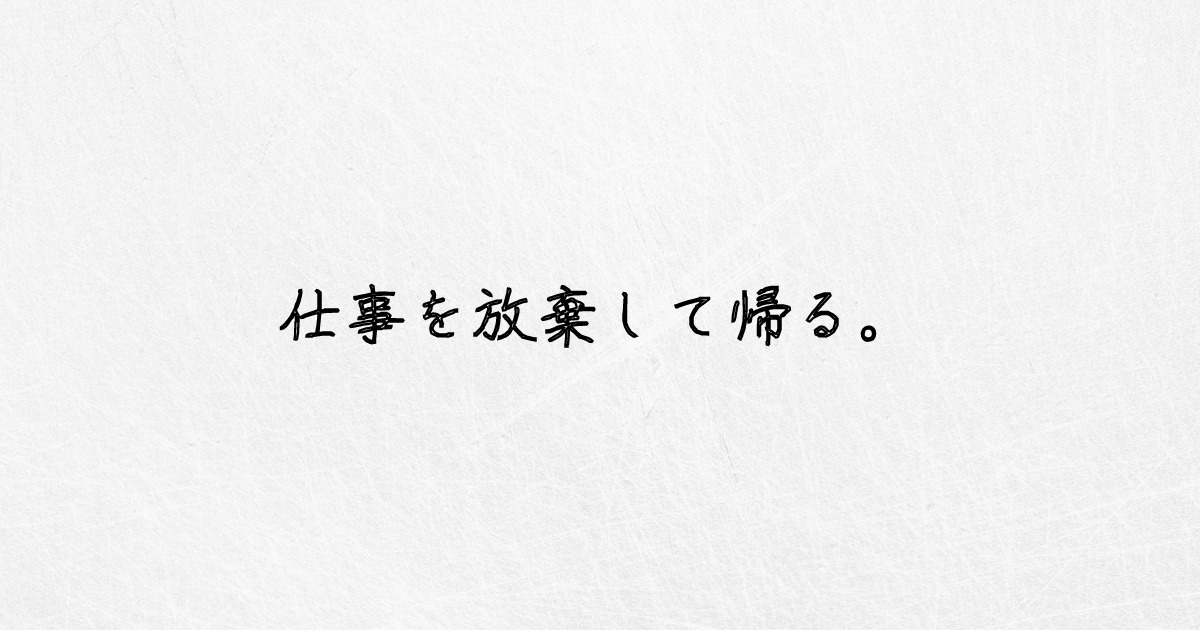 仕事を放棄して帰る。